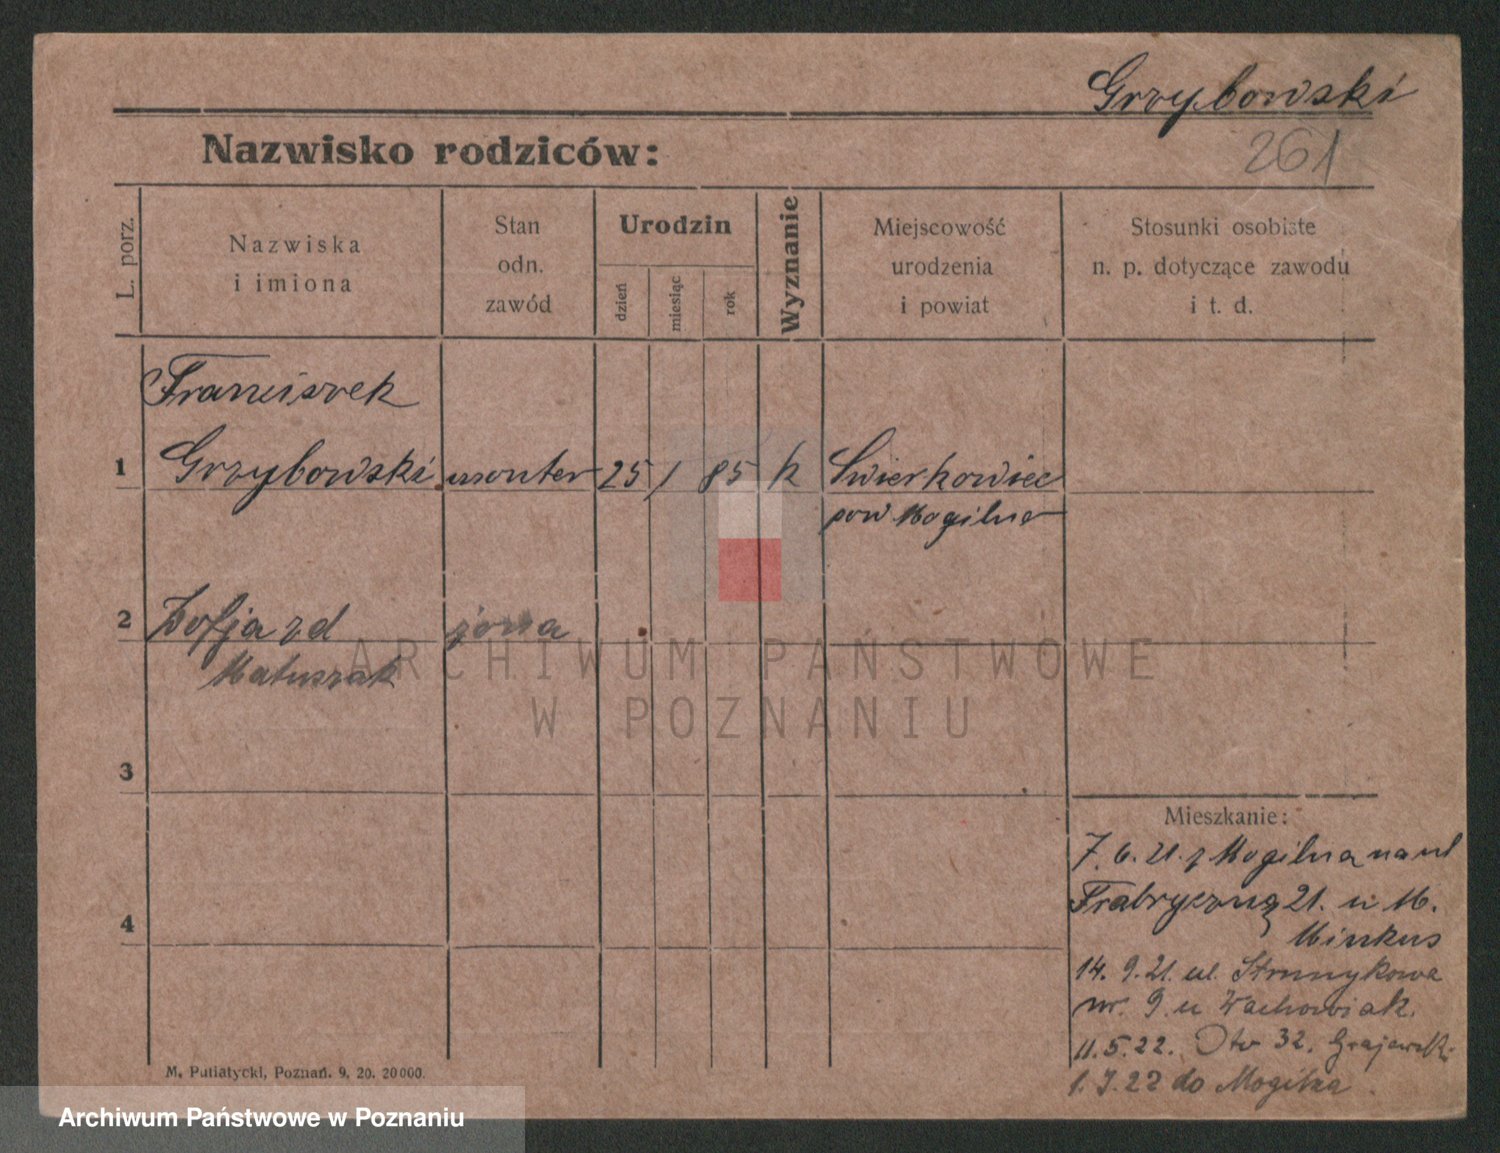 Grzybowski
261
Nazwisko rodziców:
L. porz.
Nazwiska
i imiona
Stan
odn.
zawód
Urodzin
dzień
miesiąc
rok
Wyznanie
Miejscowość
urodzenia
i powiat
Stosunki osobiste
n. p. dotyczące zawodu
i t. d.
Franciszek
1 Grzybowski monter 25 / 85 k Swierkowiec
pow Mogilna
2 Zofja zd żona
Matuszak
ARCHIWUM PAŃSTWOWE
W POZNANIU
3
4
Mieszkanie:
7.6.21. z Mogilna na ul
Frabryczną 21. u M.
Minkus
14. 9. 21. ul. Strumykowa
nr. 9. u Wachowiak.
11.5.22. 32. Grajewski
22 do Mogilna.
M. Putiatycki, Poznań. 9. 20. 20000.
Archiwum Państwowe w Poznaniu